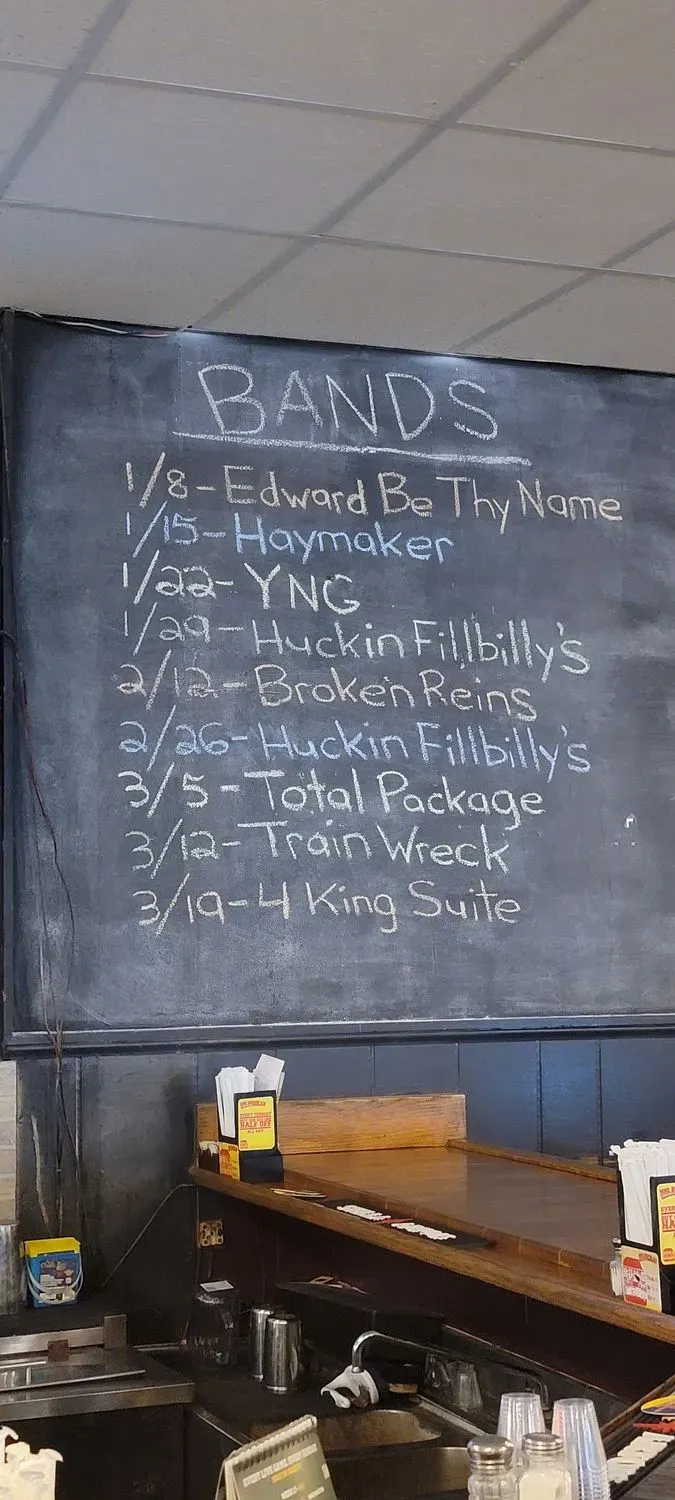 BANDS
1/8-Edward Be Thy Name
1/15-Haymaker
1/22-YNG
1/29-Huckin Fillbilly's
2/12-Broken Reins
2/26-Huckin Fillbilly's
3/5-Total Package
3/12-Train Wreck
3/19-4 King Suite
HALF OFF
ALL DAY